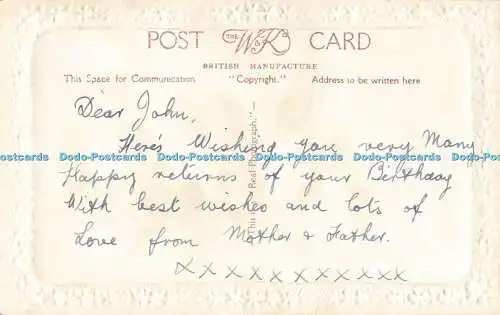 POST THE W&K CARD
BRITISH MANUFACTURE
This Space for Communication. "Copyright." Address to be written here
Dear John,
Here's Wishing you very Many
Dodo-Postcards Dodo-Postcards Dodo-Postcards Dodo-Postcards Dodo-Postcards
Happy returns of your Birthday
With best wishes and lots of
Love from Mother & Father.
x x x x x x x x x x x
Real Photograph."—